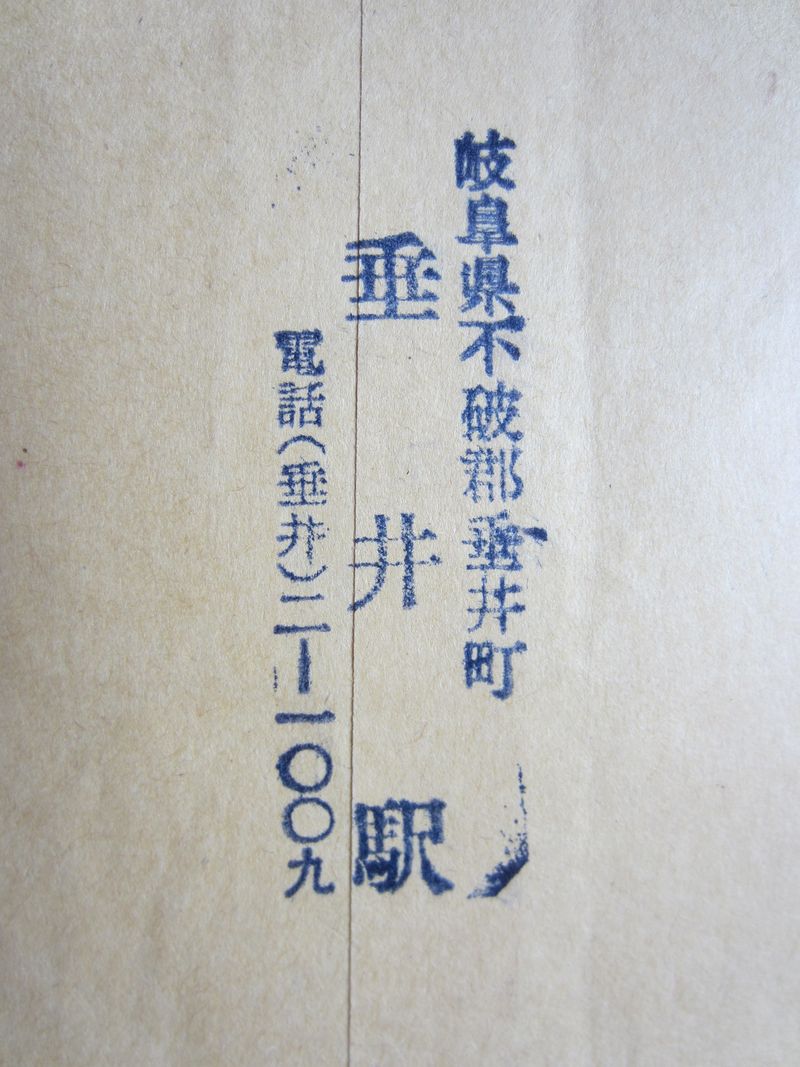 岐阜県不破郡垂井町
垂井駅
電話(垂井)二―一〇〇九